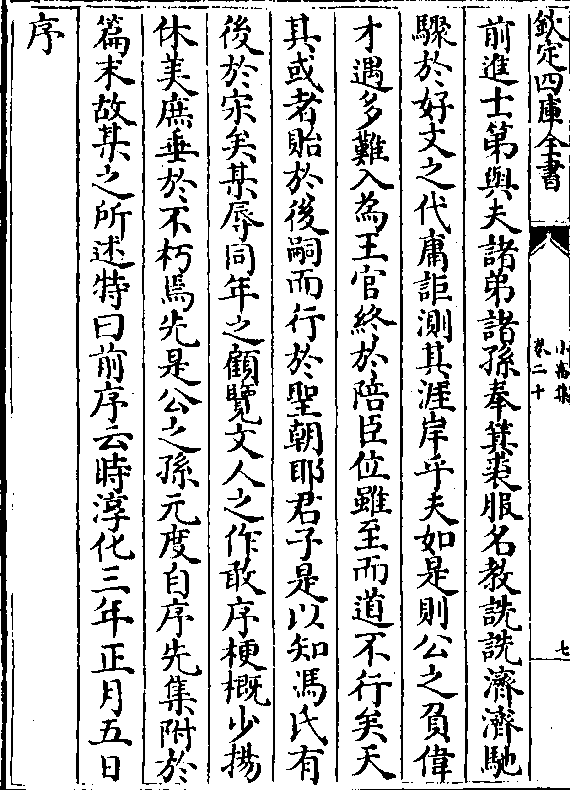 欽定四庫全書
小畜集
卷二十
七
前進士第與夫諸弟諸孫奉箕裘服名教詵詵濟濟馳
驟於好文之代庸詎測其涯岸乎夫如是則公之負偉
才遇多難入為王官終於陪臣位雖至而道不行矣天
其或者貽於後嗣而行於聖朝耶君子是以知馮氏有
後於宋矣某辱同年之顧覽文人之作敢序梗概少揚
休美庶垂於不朽焉先是公之孫元度自序先集附於
篇末故某之所述特曰前序云時淳化三年正月五日
序